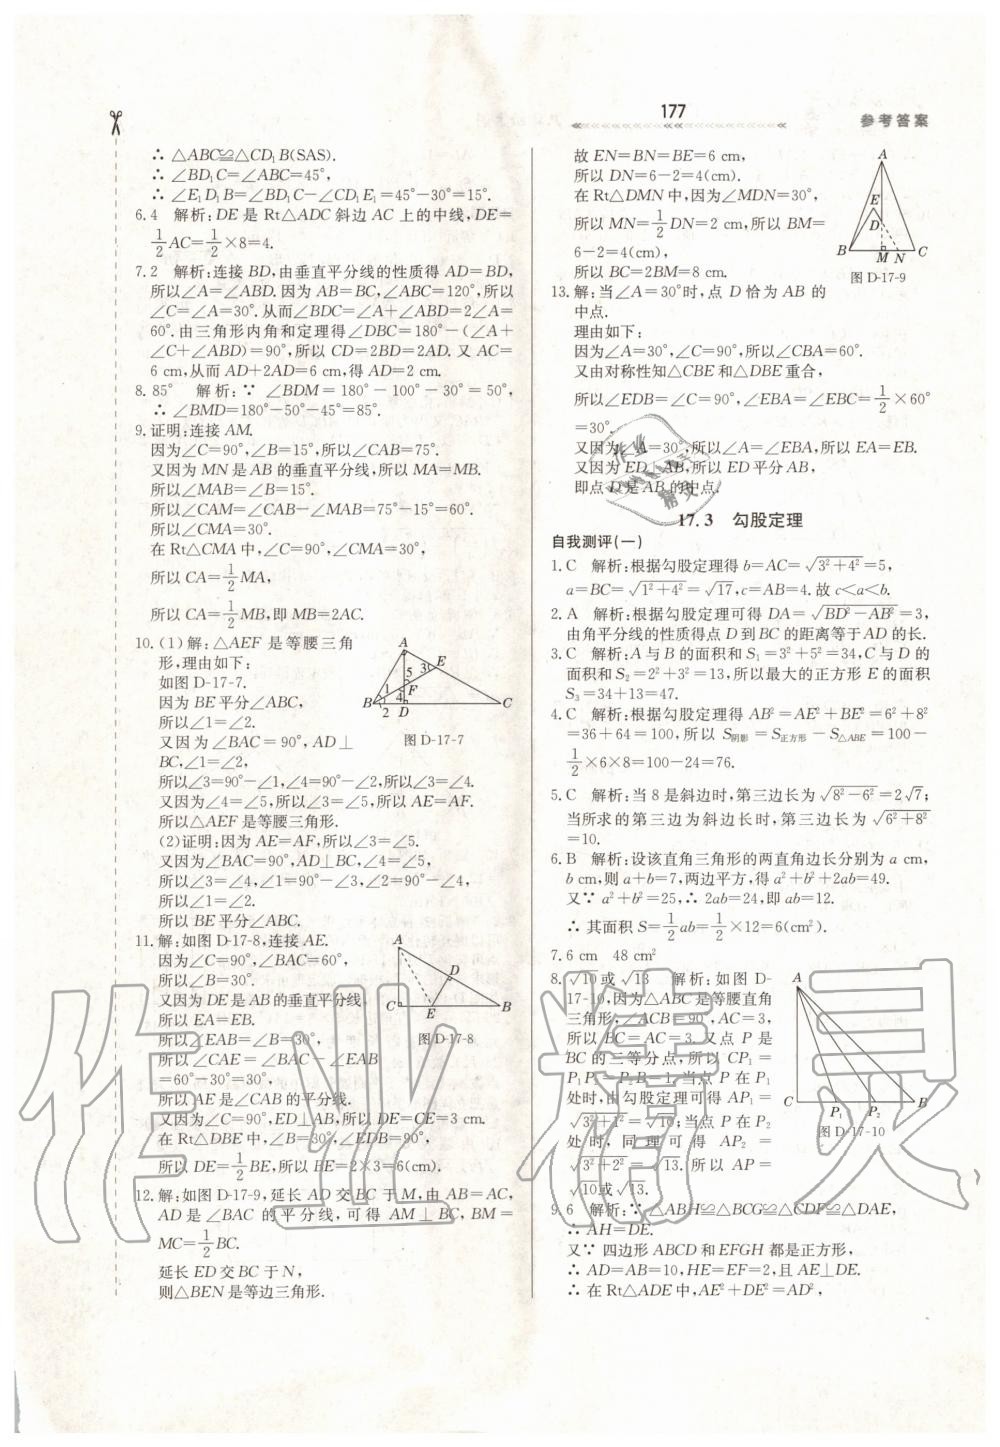 177
参考答案
∴ △ABC≌△CD₁B(SAS).
∴ ∠BD₁C=∠ABC=45°,
∴ ∠E₁D₁B=∠BD₁C-∠CD₁E₁=45°-30°=15°.
6.4 解析:DE 是 Rt△ADC 斜边 AC 上的中线,DE=
1/2AC=1/2×8=4.
7.2 解析:连接 BD,由垂直平分线的性质得 AD=BD,
所以∠A=∠ABD. 因为 AB=BC,∠ABC=120°,所以
∠C=∠A=30°. 从而∠BDC=∠A+∠ABD=2∠A=
60°. 由三角形内角和定理得∠DBC=180°-(∠A+
∠C+∠ABD)=90°,所以 CD=2BD=2AD. 又 AC=
6 cm,从而 AD+2AD=6 cm,得 AD=2 cm.
8. 85° 解析:∵ ∠BDM=180°-100°-30°=50°,
∴ ∠BMD=180°-50°-45°=85°.
9.证明:连接 AM.
因为∠C=90°,∠B=15°,所以∠CAB=75°.
又因为 MN 是 AB 的垂直平分线,所以 MA=MB.
所以∠MAB=∠B=15°.
所以∠CAM=∠CAB-∠MAB=75°-15°=60°.
所以∠CMA=30°.
在 Rt△CMA 中,∠C=90°,∠CMA=30°,
所以 CA=1/2MA,
所以 CA=1/2MB,即 MB=2AC.
10.(1)解:△AEF 是等腰三角
形,理由如下:
如图 D-17-7.
因为 BE 平分∠ABC,
所以∠1=∠2.
又因为∠BAC=90°,AD⊥
BC,∠1=∠2,
A
5
3
E
1
F
4
B
2
D
C
图 D-17-7
所以∠3=90°-∠1,∠4=90°-∠2,所以∠3=∠4.
又因为∠4=∠5,所以∠3=∠5,所以 AE=AF.
所以△AEF 是等腰三角形.
(2)证明:因为 AE=AF,所以∠3=∠5.
又因为∠BAC=90°,AD⊥BC,∠4=∠5,
所以∠3=∠4,∠1=90°-∠3,∠2=90°-∠4,
所以∠1=∠2.
所以 BE 平分∠ABC.
11.解:如图 D-17-8,连接 AE.
因为∠C=90°,∠ABC=60°,
所以∠B=30°.
又因为 DE 是 AB 的垂直平分线,
所以 EA=EB.
所以∠EAB=∠B=30°,
所以∠CAE=∠BAC-∠EAB
=60°-30°=30°,
所以 AE 是∠CAB 的平分线.
A
D
C
E
B
图 D-17-8
又因为∠C=90°,ED⊥AB,所以 DE=CE=3 cm.
在 Rt△DBE 中,∠B=30°,∠EDB=90°,
所以 DE=1/2BE,所以 BE=2×3=6(cm).
12.解:如图 D-17-9,延长 AD 交 BC 于 M,由 AB=AC,
AD 是∠BAC 的平分线,可得 AM⊥BC,BM=
MC=1/2BC.
延长 ED 交 BC 于 N,
则△BEN 是等边三角形.
故 EN=BN=BE=6 cm,
所以 DN=6-2=4(cm).
在 Rt△DMN 中,因为∠MDN=30°,
所以 MN=1/2DN=2 cm,所以 BM=
6-2=4(cm),
所以 BC=2BM=8 cm.
A
E
D
B
M N
C
图 D-17-9
13.解:当∠A=30°时,点 D 恰为 AB 的
中点.
理由如下:
因为∠A=30°,∠C=90°,所以∠CBA=60°.
又由对称性知△CBE 和△DBE 重合,
所以∠EDB=∠C=90°,∠EBA=∠EBC=1/2×60°
=30°.
又因为∠A=30°,所以∠A=∠EBA,所以 EA=EB.
又因为 ED⊥AB,所以 ED 平分 AB,
即点 D 是 AB 的中点.
17.3 勾股定理
自我测评(一)
1.C 解析:根据勾股定理得 b=AC=√(3²+4²)=5,
a=BC=√(1²+4²)=√17,c=AB=4. 故 c<a<b.
2.A 解析:根据勾股定理可得 DA=√(BD²-AB²)=3,
由角平分线的性质得点 D 到 BC 的距离等于 AD 的长.
3.C 解析:A 与 B 的面积和 S₁=3²+5²=34,C 与 D 的
面积和 S₂=2²+3²=13,所以最大的正方形 E 的面积
S₃=34+13=47.
4.C 解析:根据勾股定理得 AB²=AE²+BE²=6²+8²
=36+64=100,所以 S阴影=S正方形-S△ABE=100-
1/2×6×8=100-24=76.
5.C 解析:当 8 是斜边时,第三边长为√(8²-6²)=2√7;
当所求的第三边为斜边长时,第三边长为√(6²+8²)
=10.
6.B 解析:设该直角三角形的两直角边长分别为 a cm,
b cm,则 a+b=7,两边平方,得 a²+b²+2ab=49.
又∵ a²+b²=25,∴ 2ab=24,即 ab=12.
∴ 其面积 S=1/2ab=1/2×12=6(cm²).
7.6 cm 48 cm²
8.√10或√13 解析:如图 D-
17-10,因为△ABC 是等腰直角
三角形,∠ACB=90°,AC=3,
所以 BC=AC=3. 又点 P 是
BC 的三等分点,所以 CP₁=
P₁P₂=P₂B=1. 当点 P 在 P₁
处时,由勾股定理得 AP₁=
√(3²+1²)=√10;当点 P 在 P₂
处时,同理可得 AP₂=
√(3²+2²)=√13. 所以 AP=
√10或√13.
A
C
P₁
P₂
B
图 D-17-10
9.6 解析:∵ △ABH≌△BCG≌△CDF≌△DAE,
∴ AH=DE.
又∵ 四边形 ABCD 和 EFGH 都是正方形,
∴ AD=AB=10,HE=EF=2,且 AE⊥DE.
∴ 在 Rt△ADE 中,AE²+DE²=AD²,
作业精灵